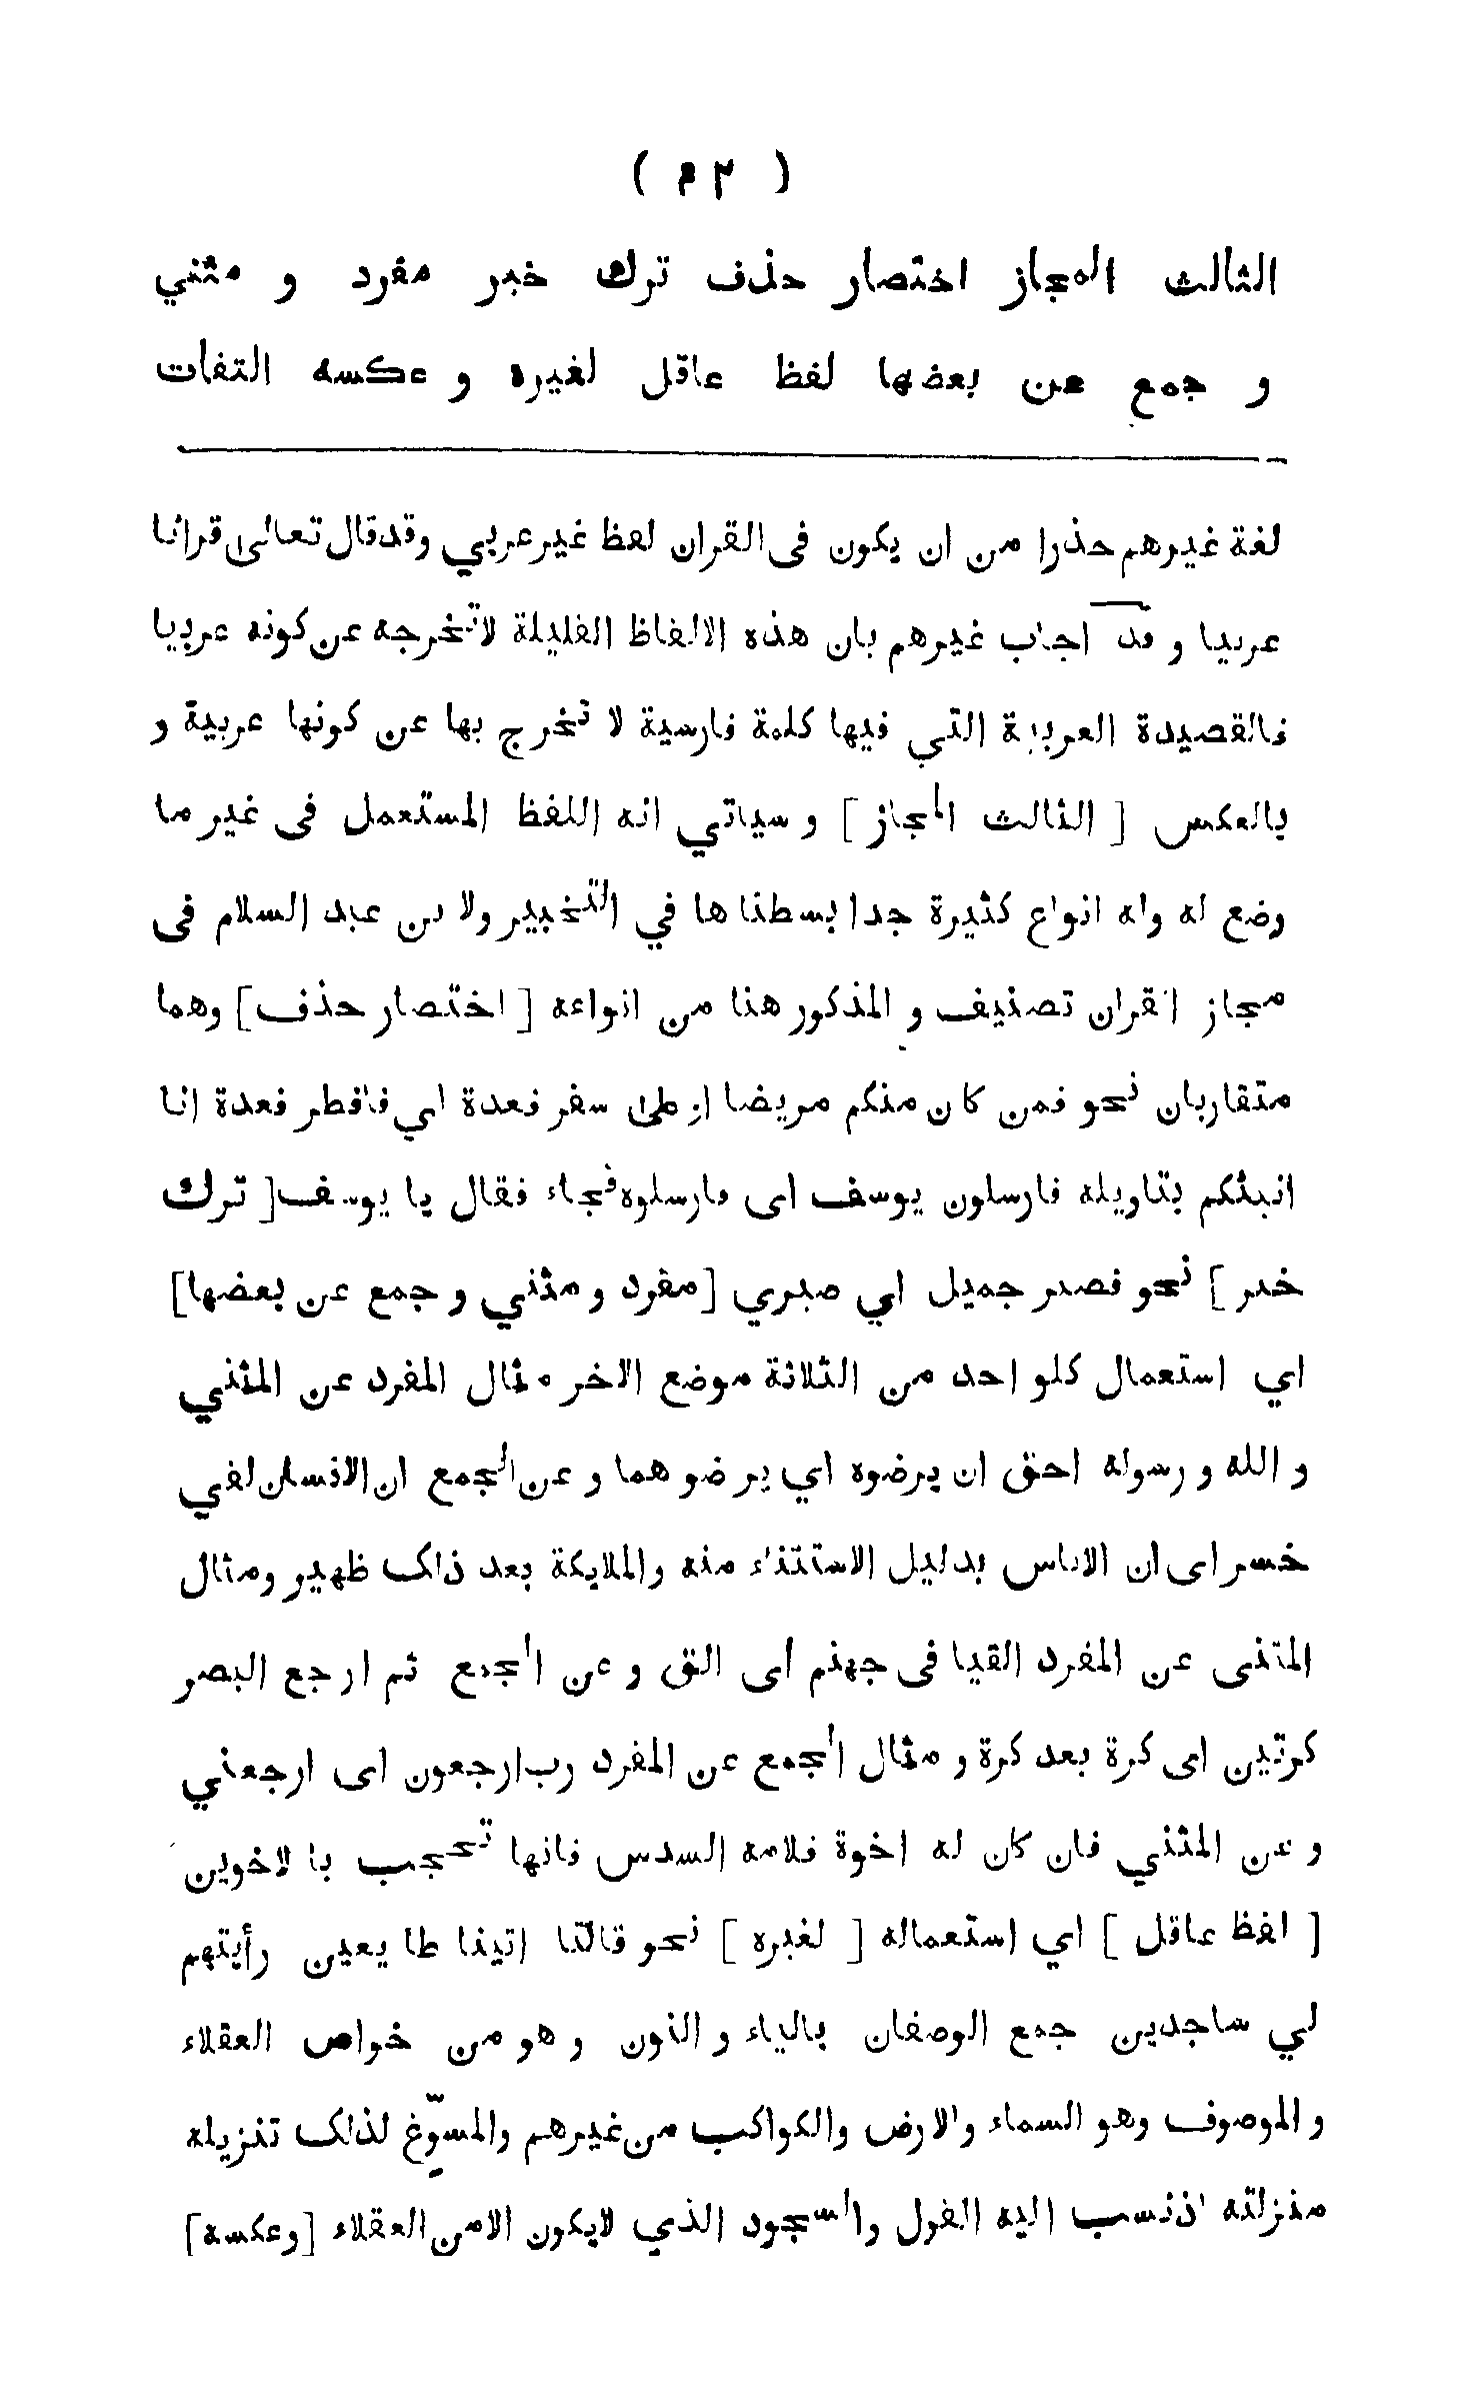 ( ٢٣ )
الثالث المجاز اختصار حذف ترك خبر مفرد و مثني
و جمع عن بعضها لفظ عاقل لغيره و عكسه التفات
لغة غيرهم حذرا من ان يكون فى القران لفظ غير عربي وقد قال تعالى قرانا
عربيا و قد اجاب غيرهم بان هذه الالفاظ القليلة لا تخرجه عن كونه عربيا
فالقصيدة العربية التي فيها كلمة فارسية لا تخرج بها عن كونها عربية و
بالعكس [ الثالث المجاز ] و سياتي انه اللفظ المستعمل فى غير ما
وضع له وله انواع كثيرة جدا بسطنا ها في التخبير ولا بن عبد السلام فى
مجاز القران تصنيف و المذكور هنا من انواعه [ اختصار حذف ] وهما
متقاربان نحو فمن كان منكم مريضا او على سفر فعدة اي فافطر فعدة انا
انبئكم بتاويله فارسلون يوسف اى فارسلوه فجاء فقال يا يوسف [ ترك
خبر ] نحو فصبر جميل اي صبري [ مفرد و مثني و جمع عن بعضها ]
اي استعمال كلو احد من الثلاثة موضع الاخر مثال المفرد عن المثني
و الله و رسوله احق ان يرضوه اي يرضو هما و عن الجمع ان الانسان لفي
خسر اى ان الاناس بدليل الاستثناء منه والملايكة بعد ذلك ظهير ومثال
المثنى عن المفرد القيا فى جهنم اى الق و عن الجمع ثم ارجع البصر
كرتين اى كرة بعد كرة و مثال الجمع عن المفرد رب ارجعون اى ارجعني
و عن المثني فان كان له اخوة فلامه السدس فانها تحجب با لاخوين
[ لفظ عاقل ] اي استعماله [ لغيره ] نحو قالتا اتينا طا يعين رأيتهم
لي ساجدين جمع الوصفان بالياء و النون و هو من خواص العقلاء
و الموصوف وهو السماء والارض والكواكب من غيرهم والمسوّغ لذلك تنزيله
منزلته اذ نسب اليه القول والسجود الذي لايكون الا من العقلاء [ وعكسه ]